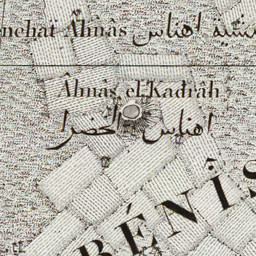 nehât Âhnâs اهناس
Âhnâs el Kadrâh
اهناس الخضرا
BÉNIS